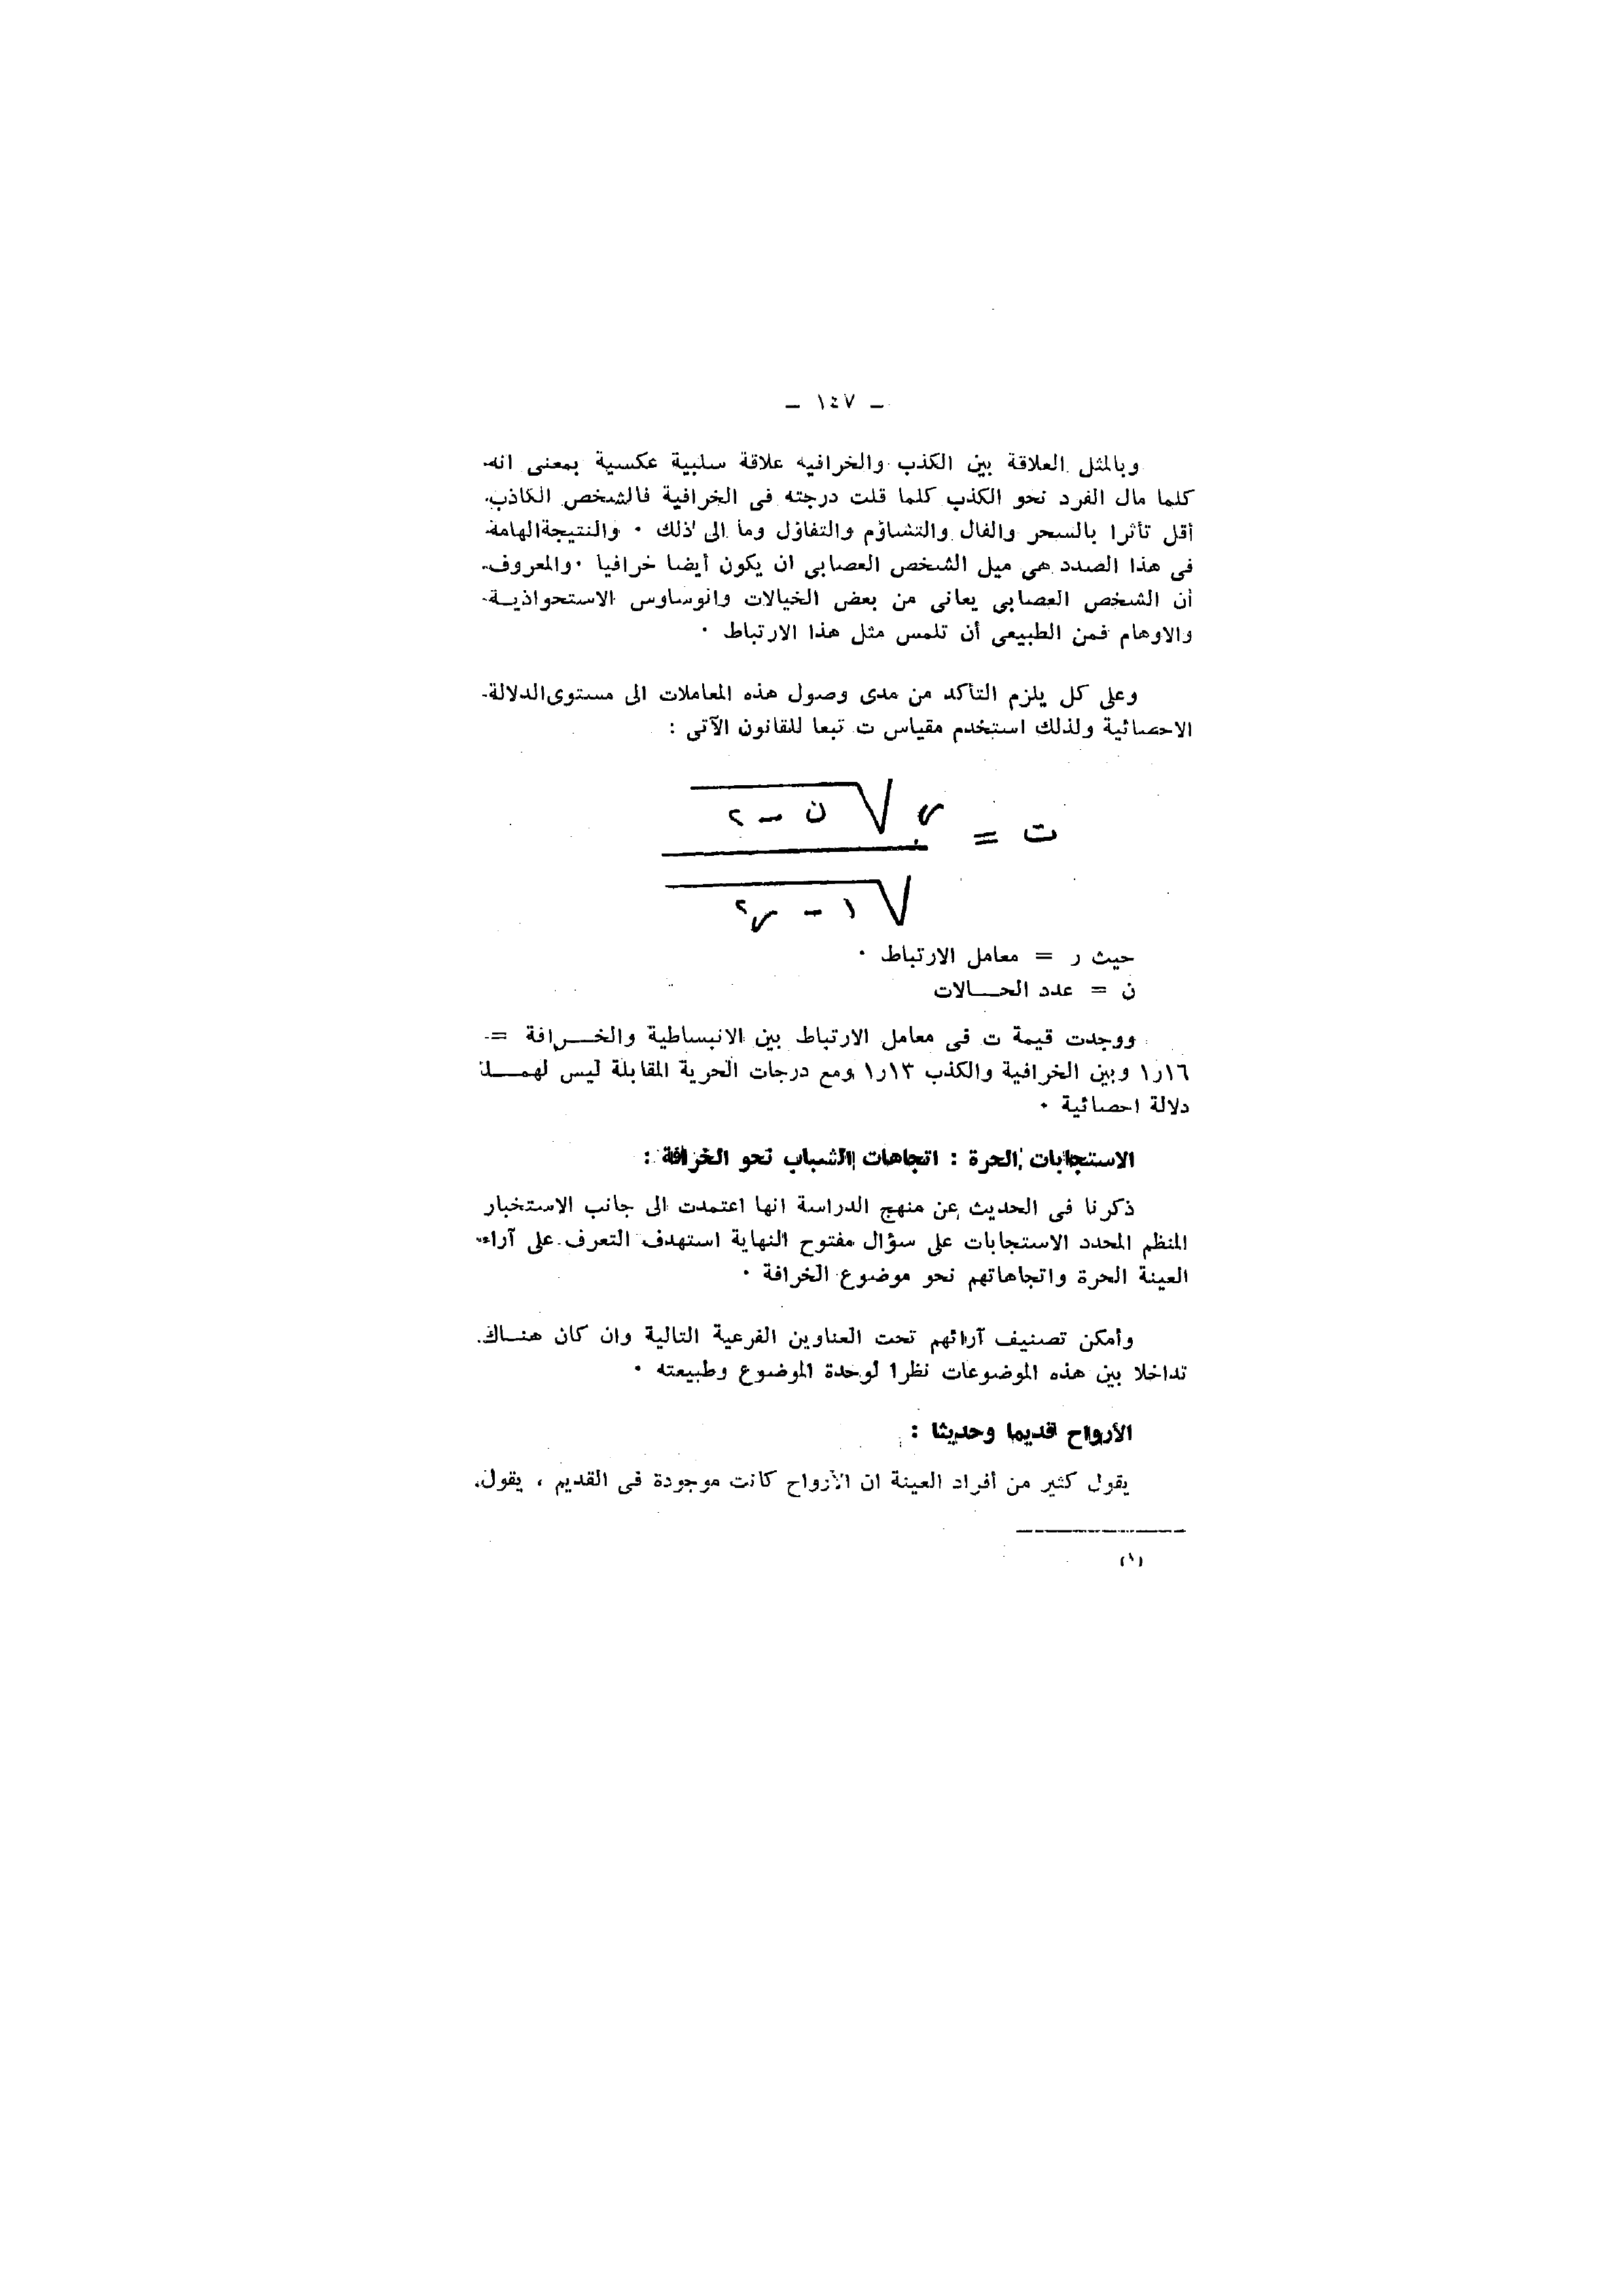 ـ ١٤٧ ـ
وبالمثل العلاقة بين الكذب والخرافيه علاقة سلبية عكسية بمعنى انه
كلما مال الفرد نحو الكذب كلما قلت درجته فى الخرافية فالشخص الكاذب
أقل تأثرا بالسحر والفال والتشاؤم والتفاؤل وما الى ذلك ٠ والنتيجة الهامة
فى هذا الصدد هى ميل الشخص العصابى ان يكون أيضا خرافيا ٠ والمعروف
أن الشخص العصابى يعانى من بعض الخيالات والوساوس الاستحواذيـة
والاوهام فمن الطبيعى أن تلمس مثل هذا الارتباط ٠
وعلى كل يلزم التأكد من مدى وصول هذه المعاملات الى مستوى الدلالة
الاحصائية ولذلك استخدم مقياس ت تبعا للقانون الآتى :
ت = ر √ ن – ٢
√ ١ – ر٢
حيث ر = معامل الارتباط ٠
ن = عدد الحـــالات
ووجدت قيمة ت فى معامل الارتباط بين الانبساطية والخـــرافة =
١٦ر١ وبين الخرافية والكذب ١٣ر١ ومع درجات الحرية المقابلة ليس لهمــا
دلالة احصائية ٠
الاستجابات الحرة : اتجاهات الشباب نحو الخرافة :
ذكرنا فى الحديث عن منهج الدراسة انها اعتمدت الى جانب الاستخبار
المنظم المحدد الاستجابات على سؤال مفتوح النهاية استهدف التعرف على آراء
العينة الحرة واتجاهاتهم نحو موضوع الخرافة ٠
وأمكن تصنيف آرائهم تحت العناوين الفرعية التالية وان كان هنـاك
تداخلا بين هذه الموضوعات نظرا لوحدة الموضوع وطبيعته ٠
الأرواح قديما وحديثا :
يقول كثير من أفراد العينة ان الأرواح كانت موجودة فى القديم ، يقول
(١)